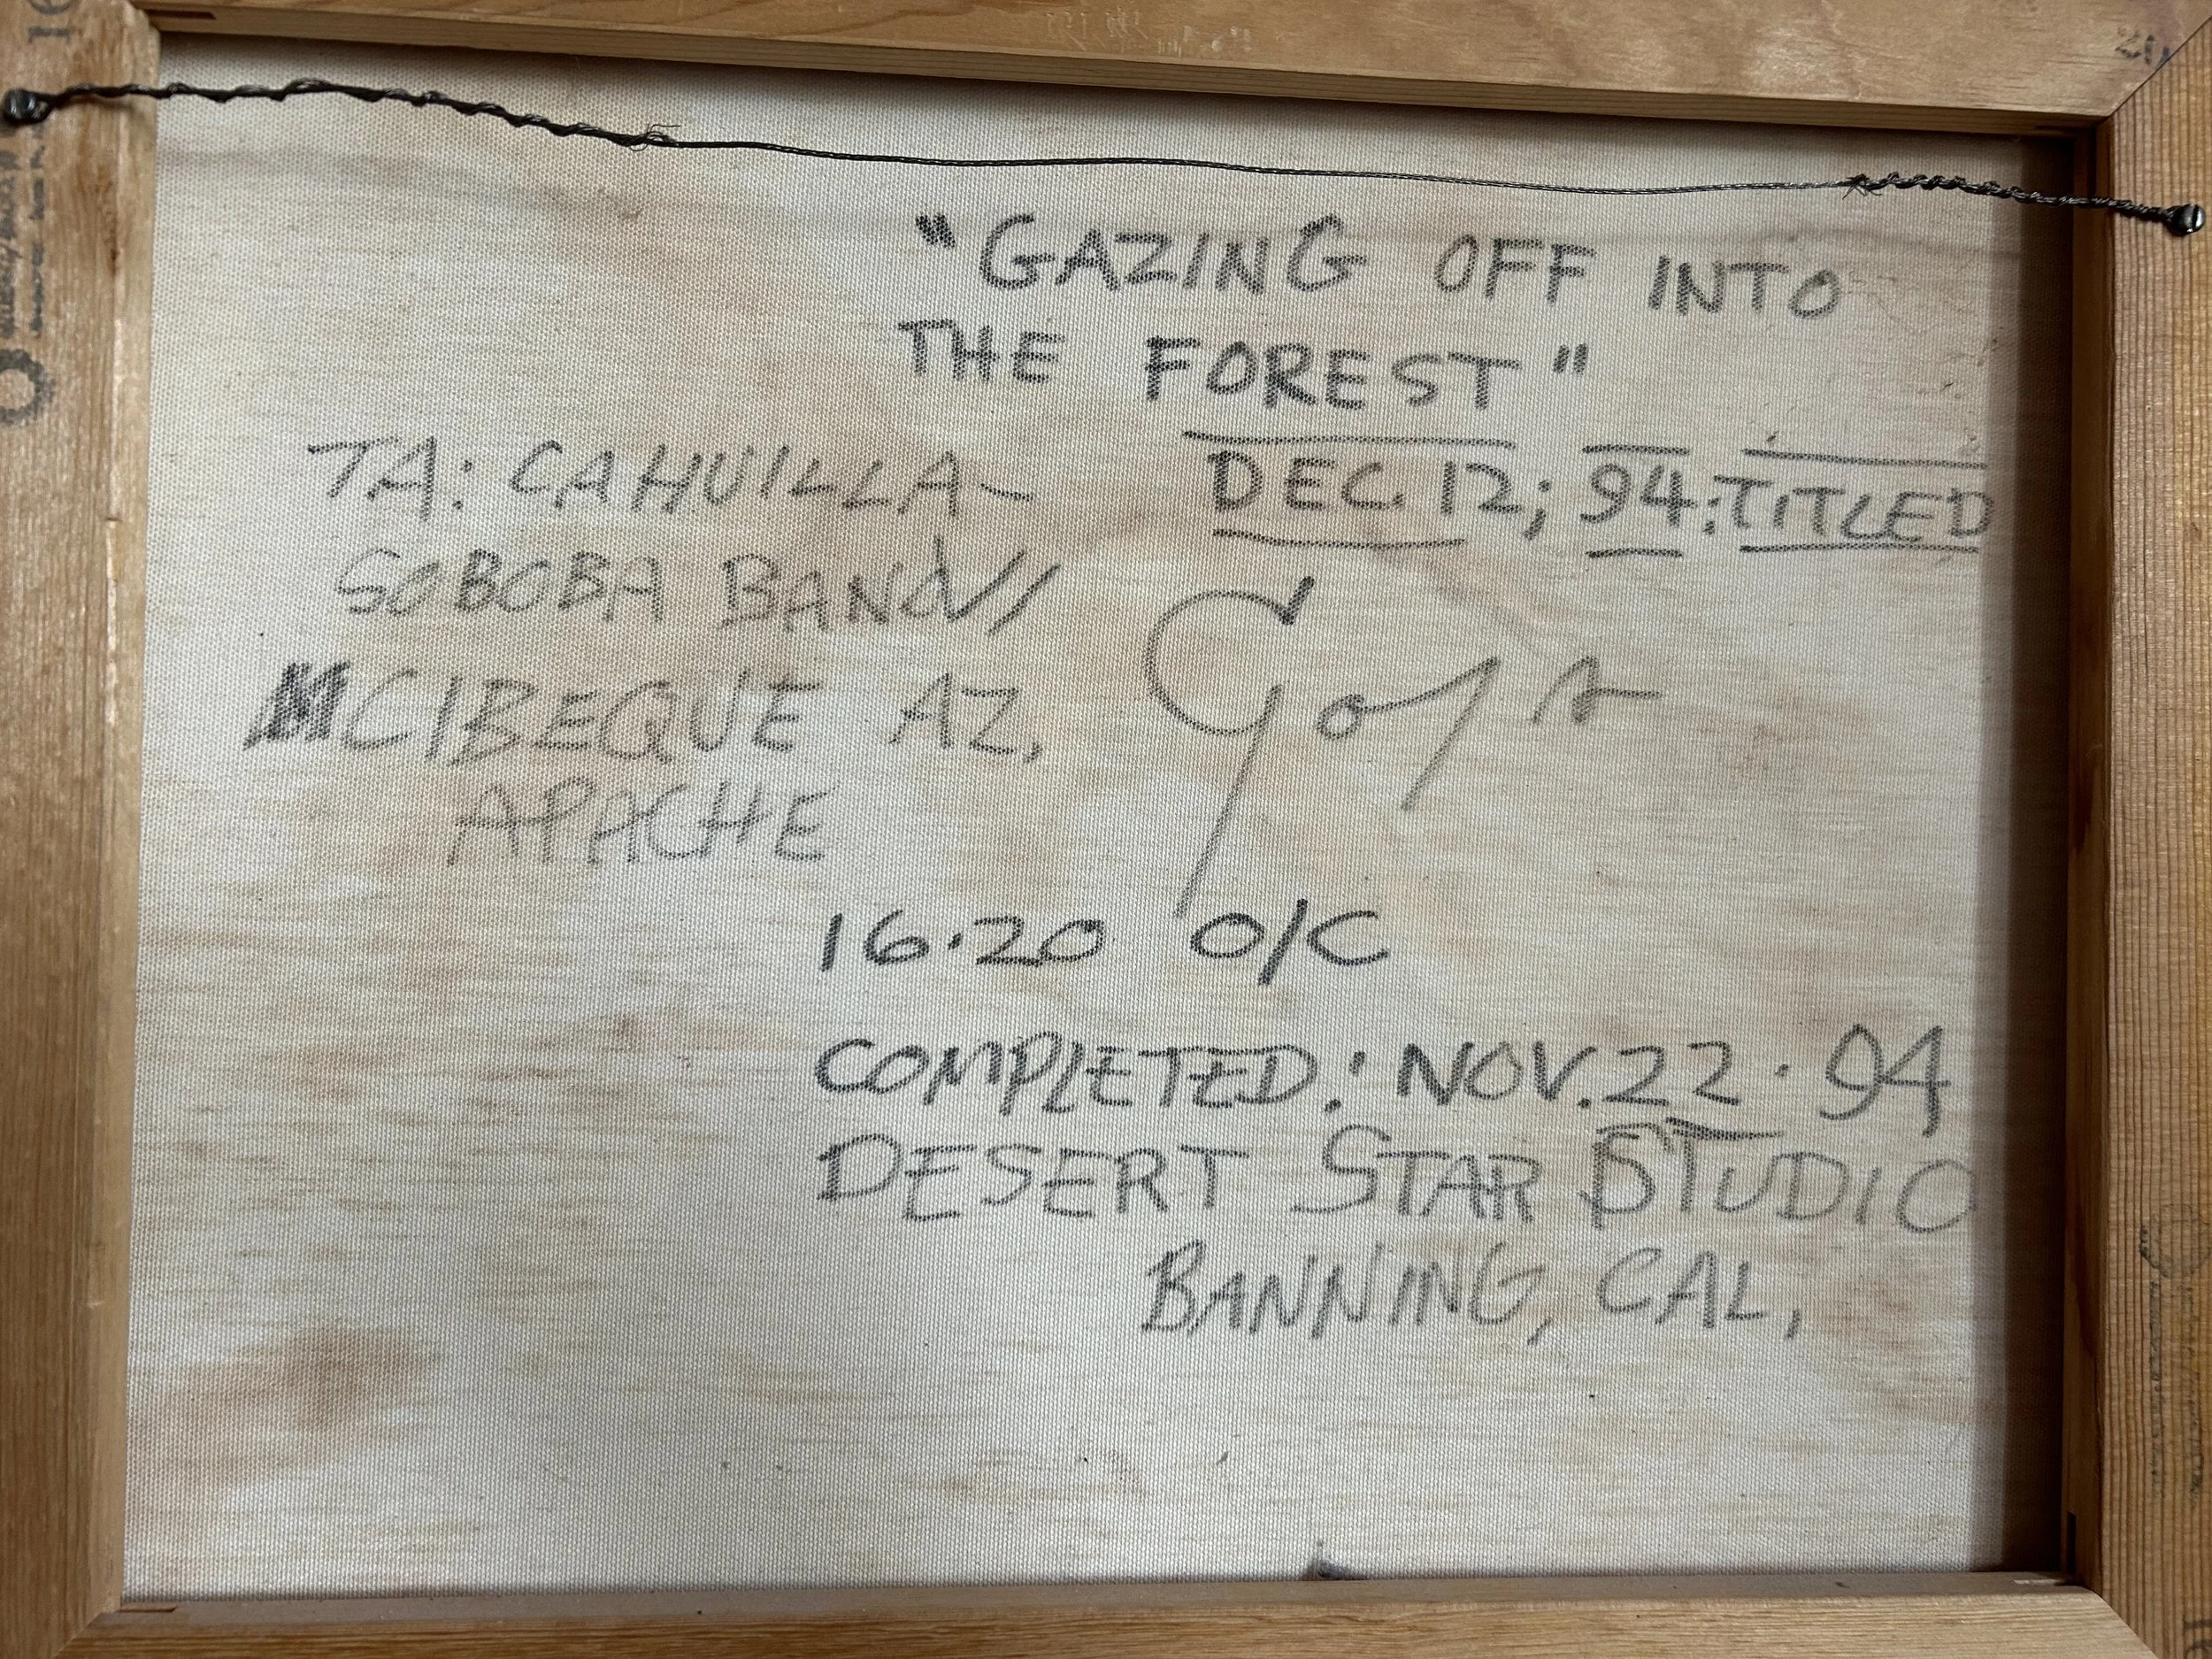 "GAZING OFF INTO
THE FOREST"
TA: CAHUILLA-
SOBOBA BAND/
CIBEQUE AZ,
APACHE
DEC. 12; 94: TITLED
16·20 O/C
COMPLETED: NOV. 22· 94
DESERT STAR STUDIO
BANNING, CAL,